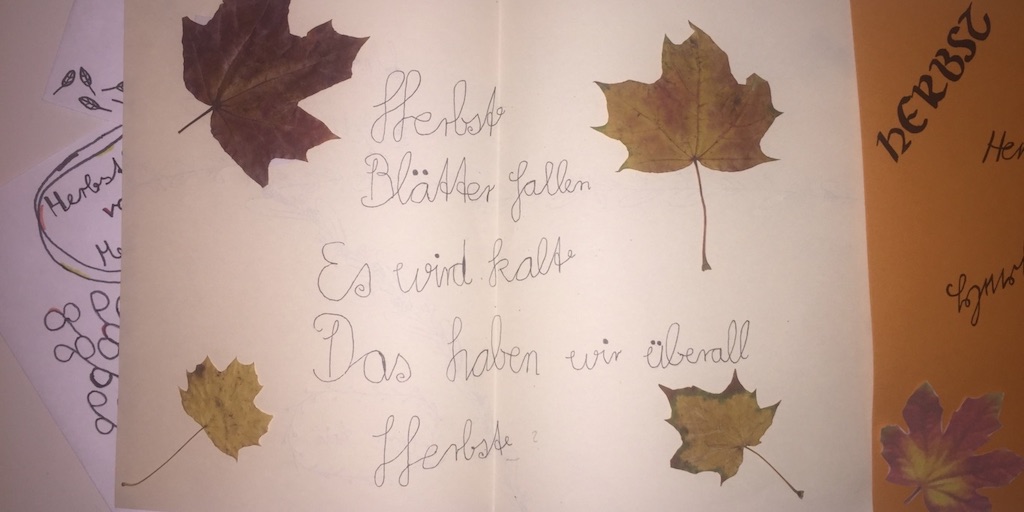 Herbste
Blätter fallen
Es wird kalt
Das haben wir überall
Herbste
HERBST
Herbst